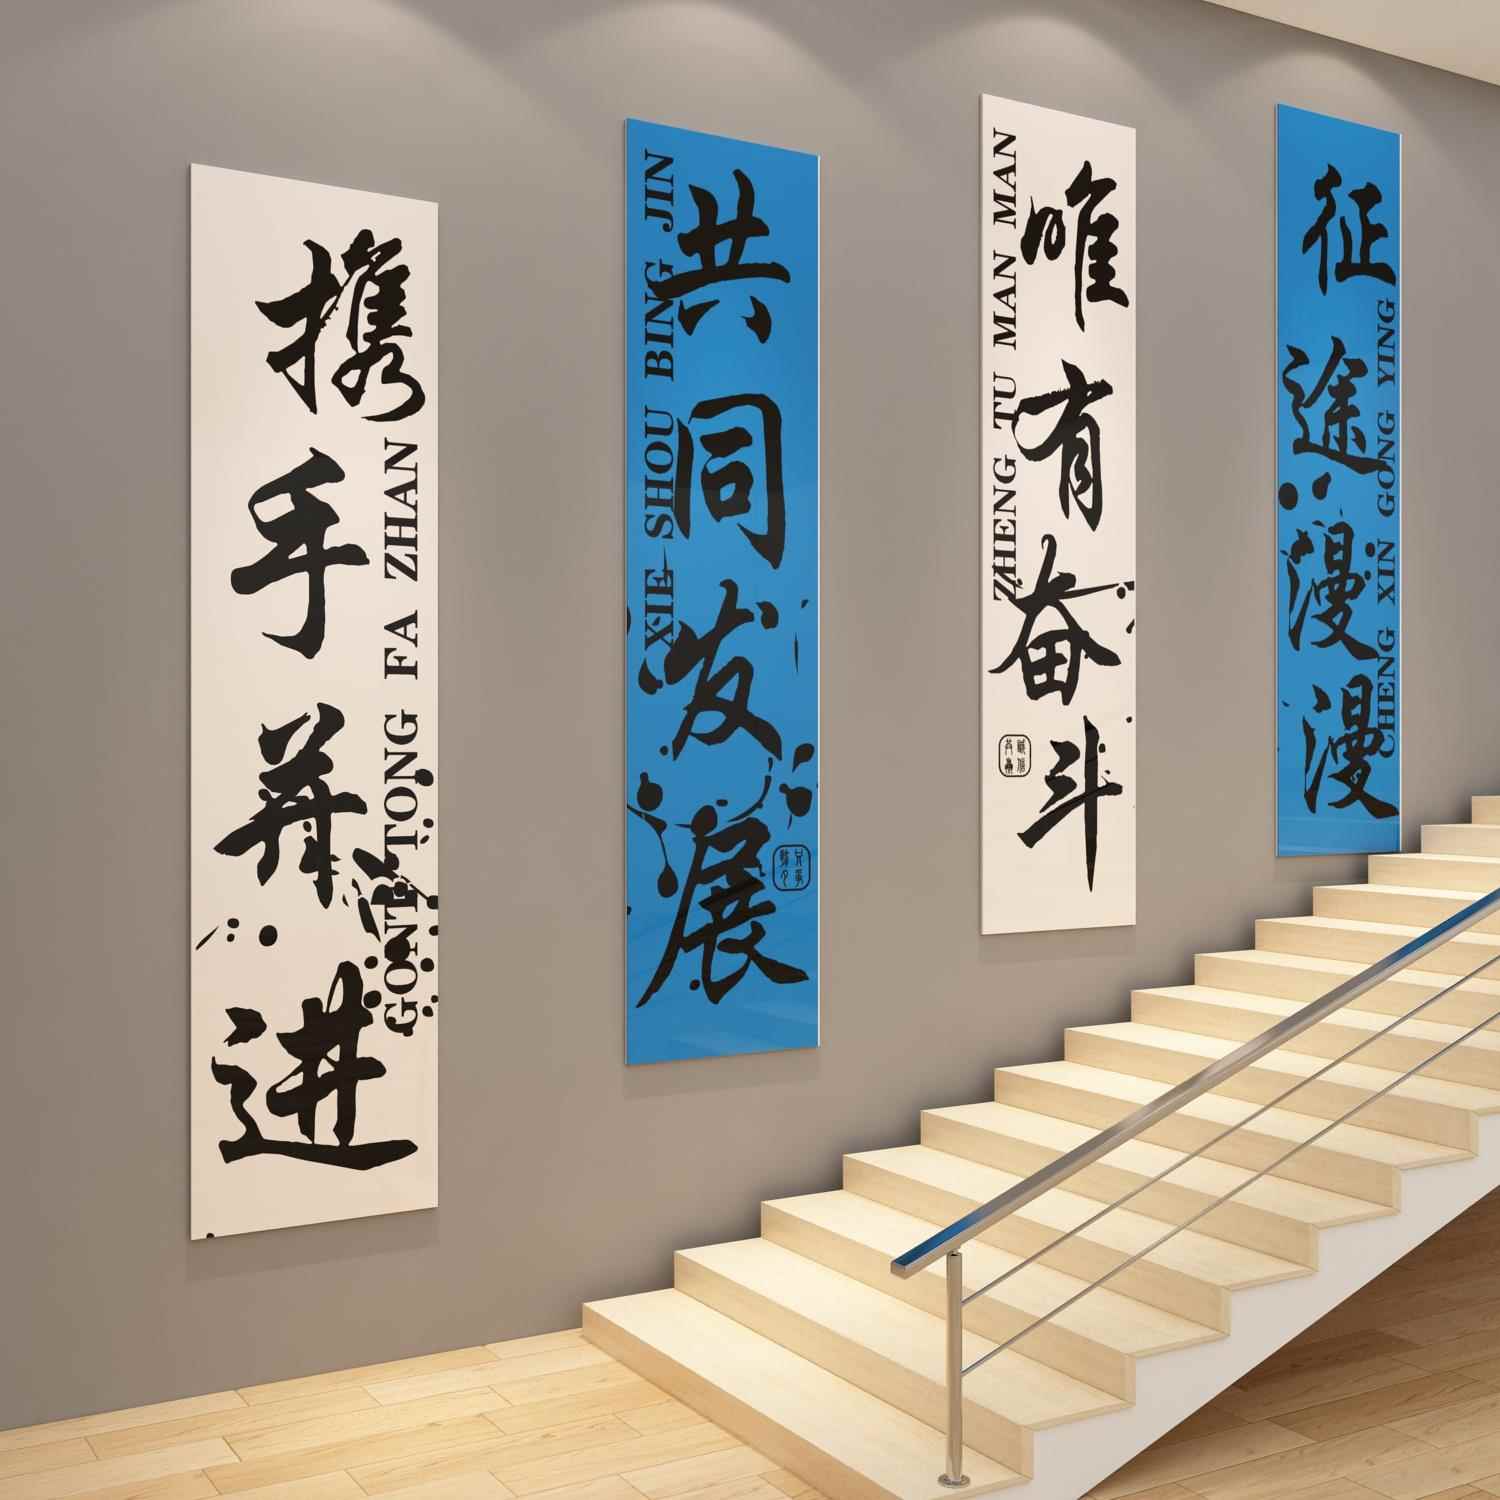 携手并进
GONG TONG FA ZHAN
共同发展
XIE SHOU BING JIN
唯有奋斗
ZHENG TU MAN MAN
征途漫漫
CHENG XIN GONG YING